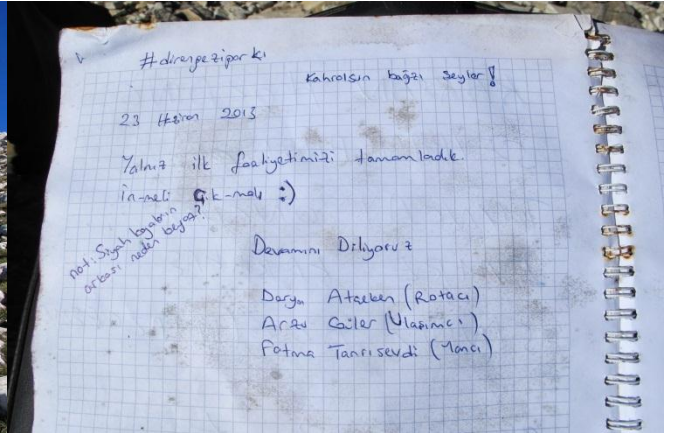 #direngeziparkı
Kahrolsun bağzı şeyler!
23 Haziran 2013
Yalnız ilk faaliyetimizi tamamladık.
İn-meli Çık-malı :)
not: Siyah kayabrin
arkası neden beyaz?
Devamını Diliyoruz
Derya (Rotacı)
Arzu (Ulaşımcı)
Fatma Tanrısevdi (Yancı)